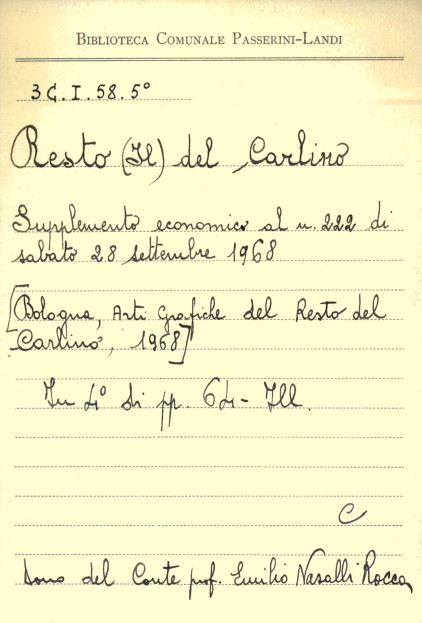 BIBLIOTECA COMUNALE PASSERINI-LANDI
3 G. I. 58. 5°
Resto (Il) del Carlino
Supplemento economico al n. 222 di
sabato 28 settembre 1968
[Bologna, Arti Grafiche del Resto del
Carlino, 1968]
In 4° di pp. 64 - Ill.
C
Dono del Conte prof. Emilio Nasalli Rocca